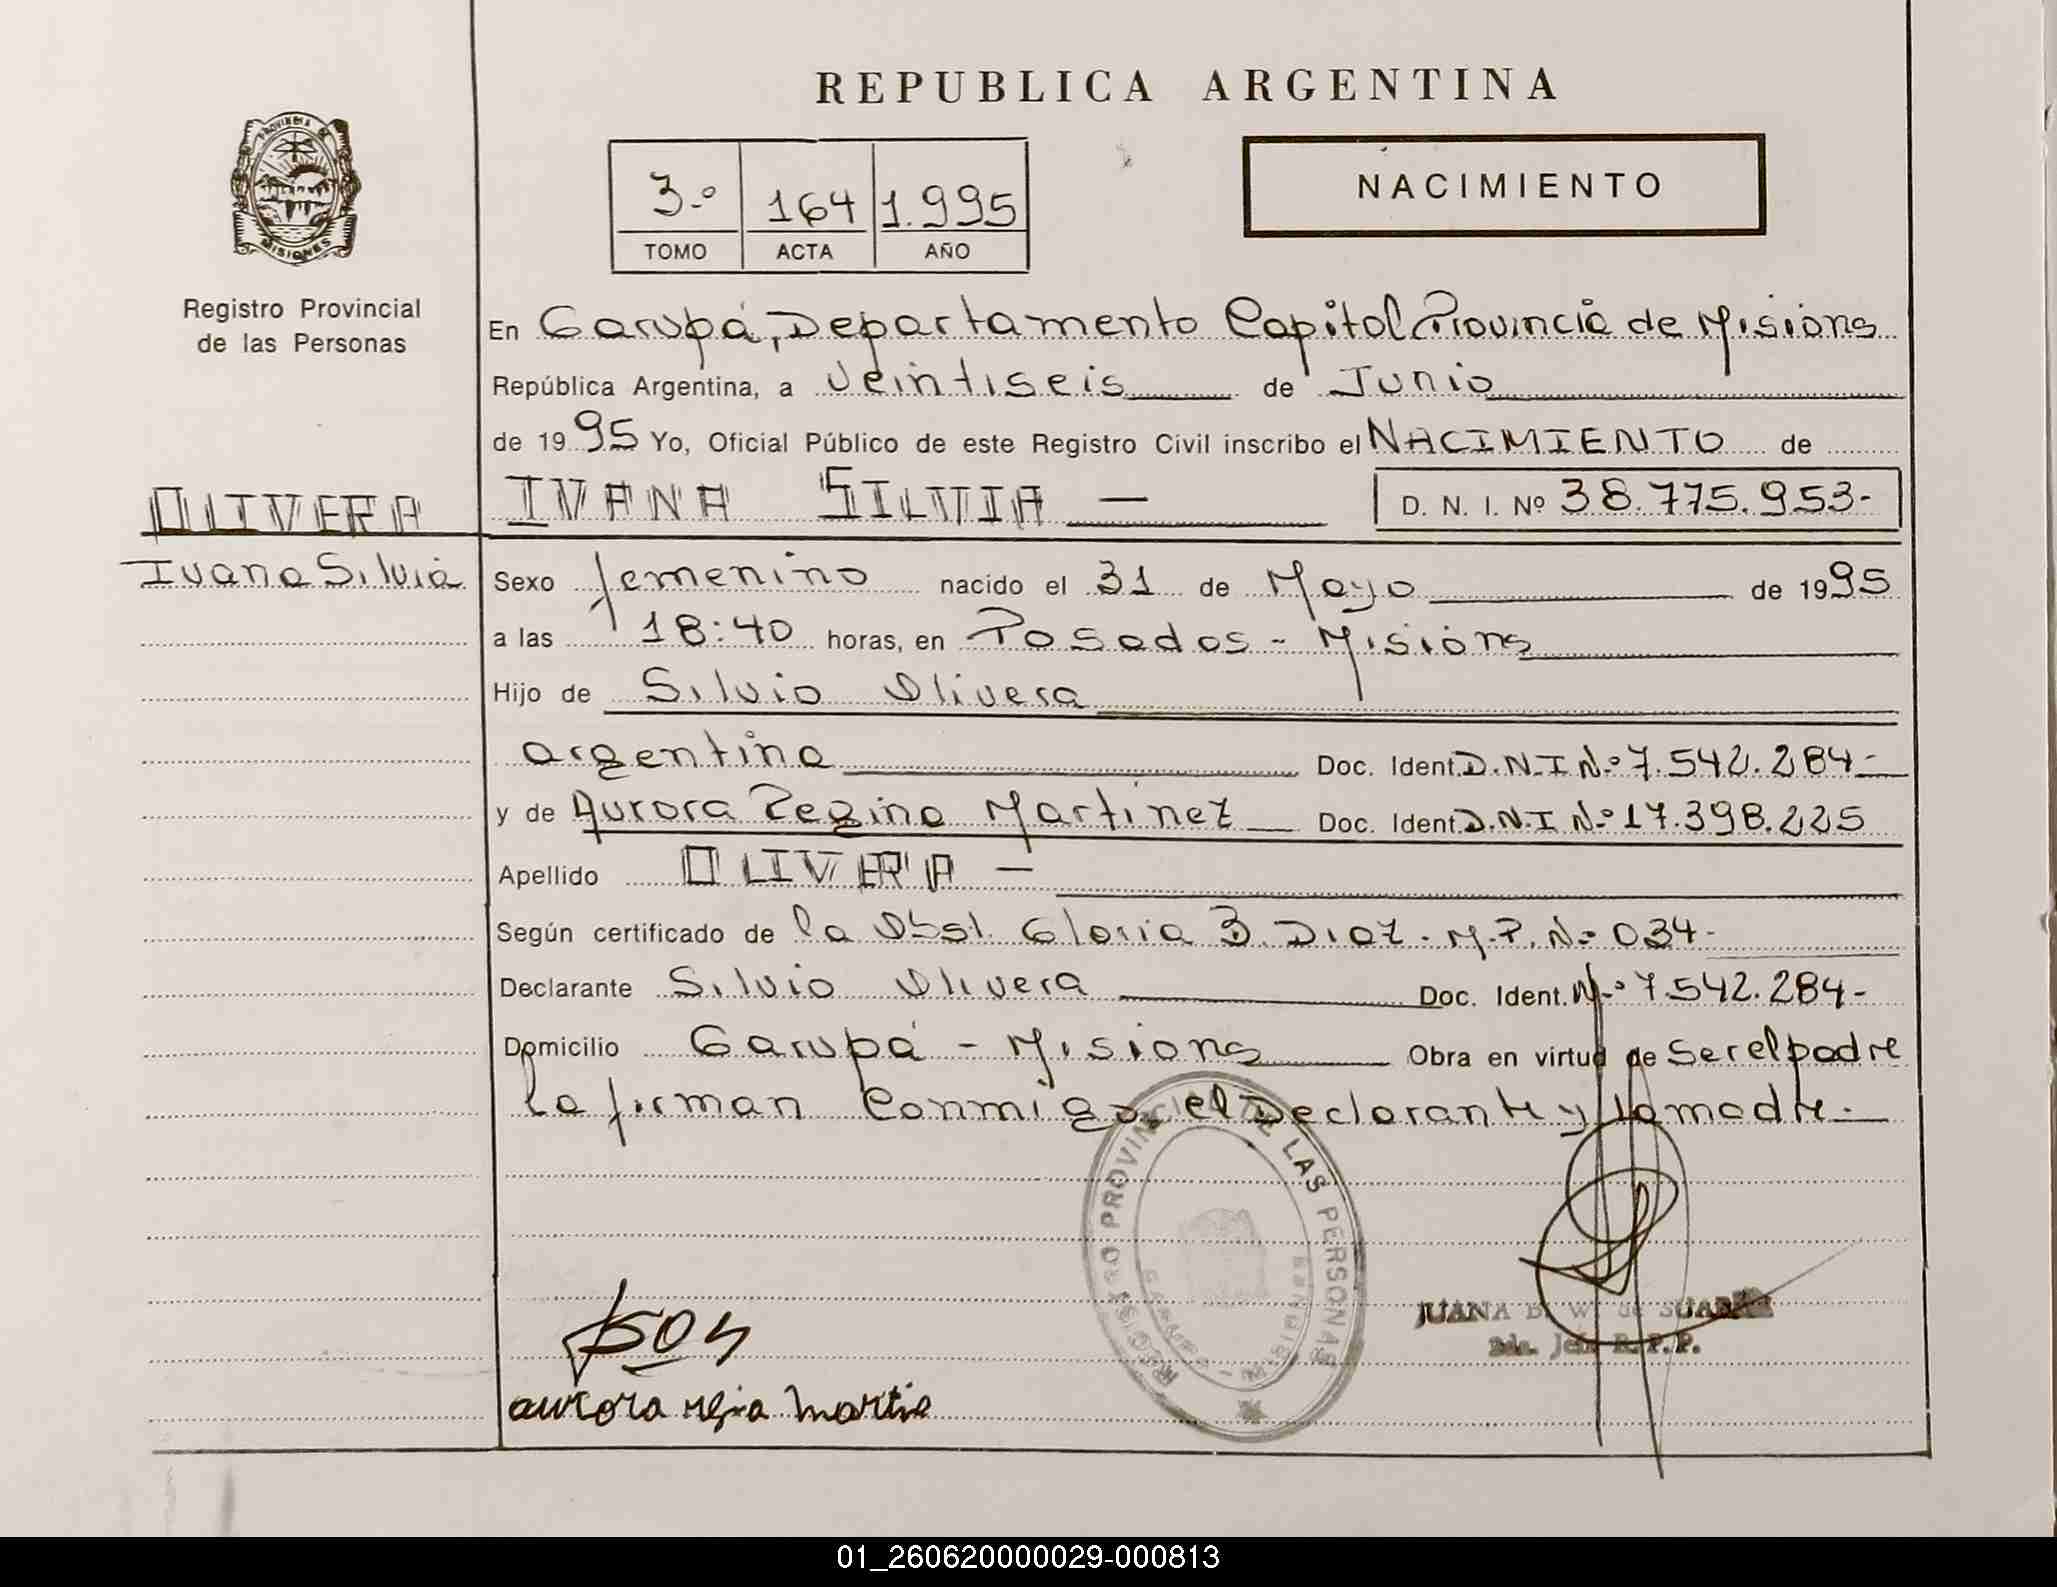 REPUBLICA ARGENTINA
PROVINCIA DE
MISIONES
3.º 164 1.995
TOMO ACTA AÑO
NACIMIENTO
Registro Provincial
de las Personas
En Garupá, Departamento Capital Provincia de Misions
República Argentina, a Veintiseis de Junio
de 1995 Yo, Oficial Público de este Registro Civil inscribo el NACIMIENTO de
OLIVERA IVANA SILVIA — D. N. I. Nº 38.775.953-
Ivana Silvia
Sexo femenino nacido el 31 de Mayo de 1995
a las 18:40 horas, en Posadas - Misions
Hijo de Silvio Olivera
argentina Doc. Ident. D.N.I N.º 7.542.284-
y de Aurora Regina Martinez Doc. Ident. D.N.I N.º 17.398.225
Apellido OLIVERA —
Según certificado de la Obst. Gloria B. Diaz. M.P. N.º 034-
Declarante Silvio Olivera Doc. Ident. N.º 7.542.284-
Domicilio Garupá - Misions Obra en virtud de Ser el padre
la firman Conmigo, el Declarante y la madre.-
REGISTRO PROVINCIAL DE LAS PERSONAS
JUANA B. W. de
Jefe R.P.P.
aurora
01_260620000029-000813